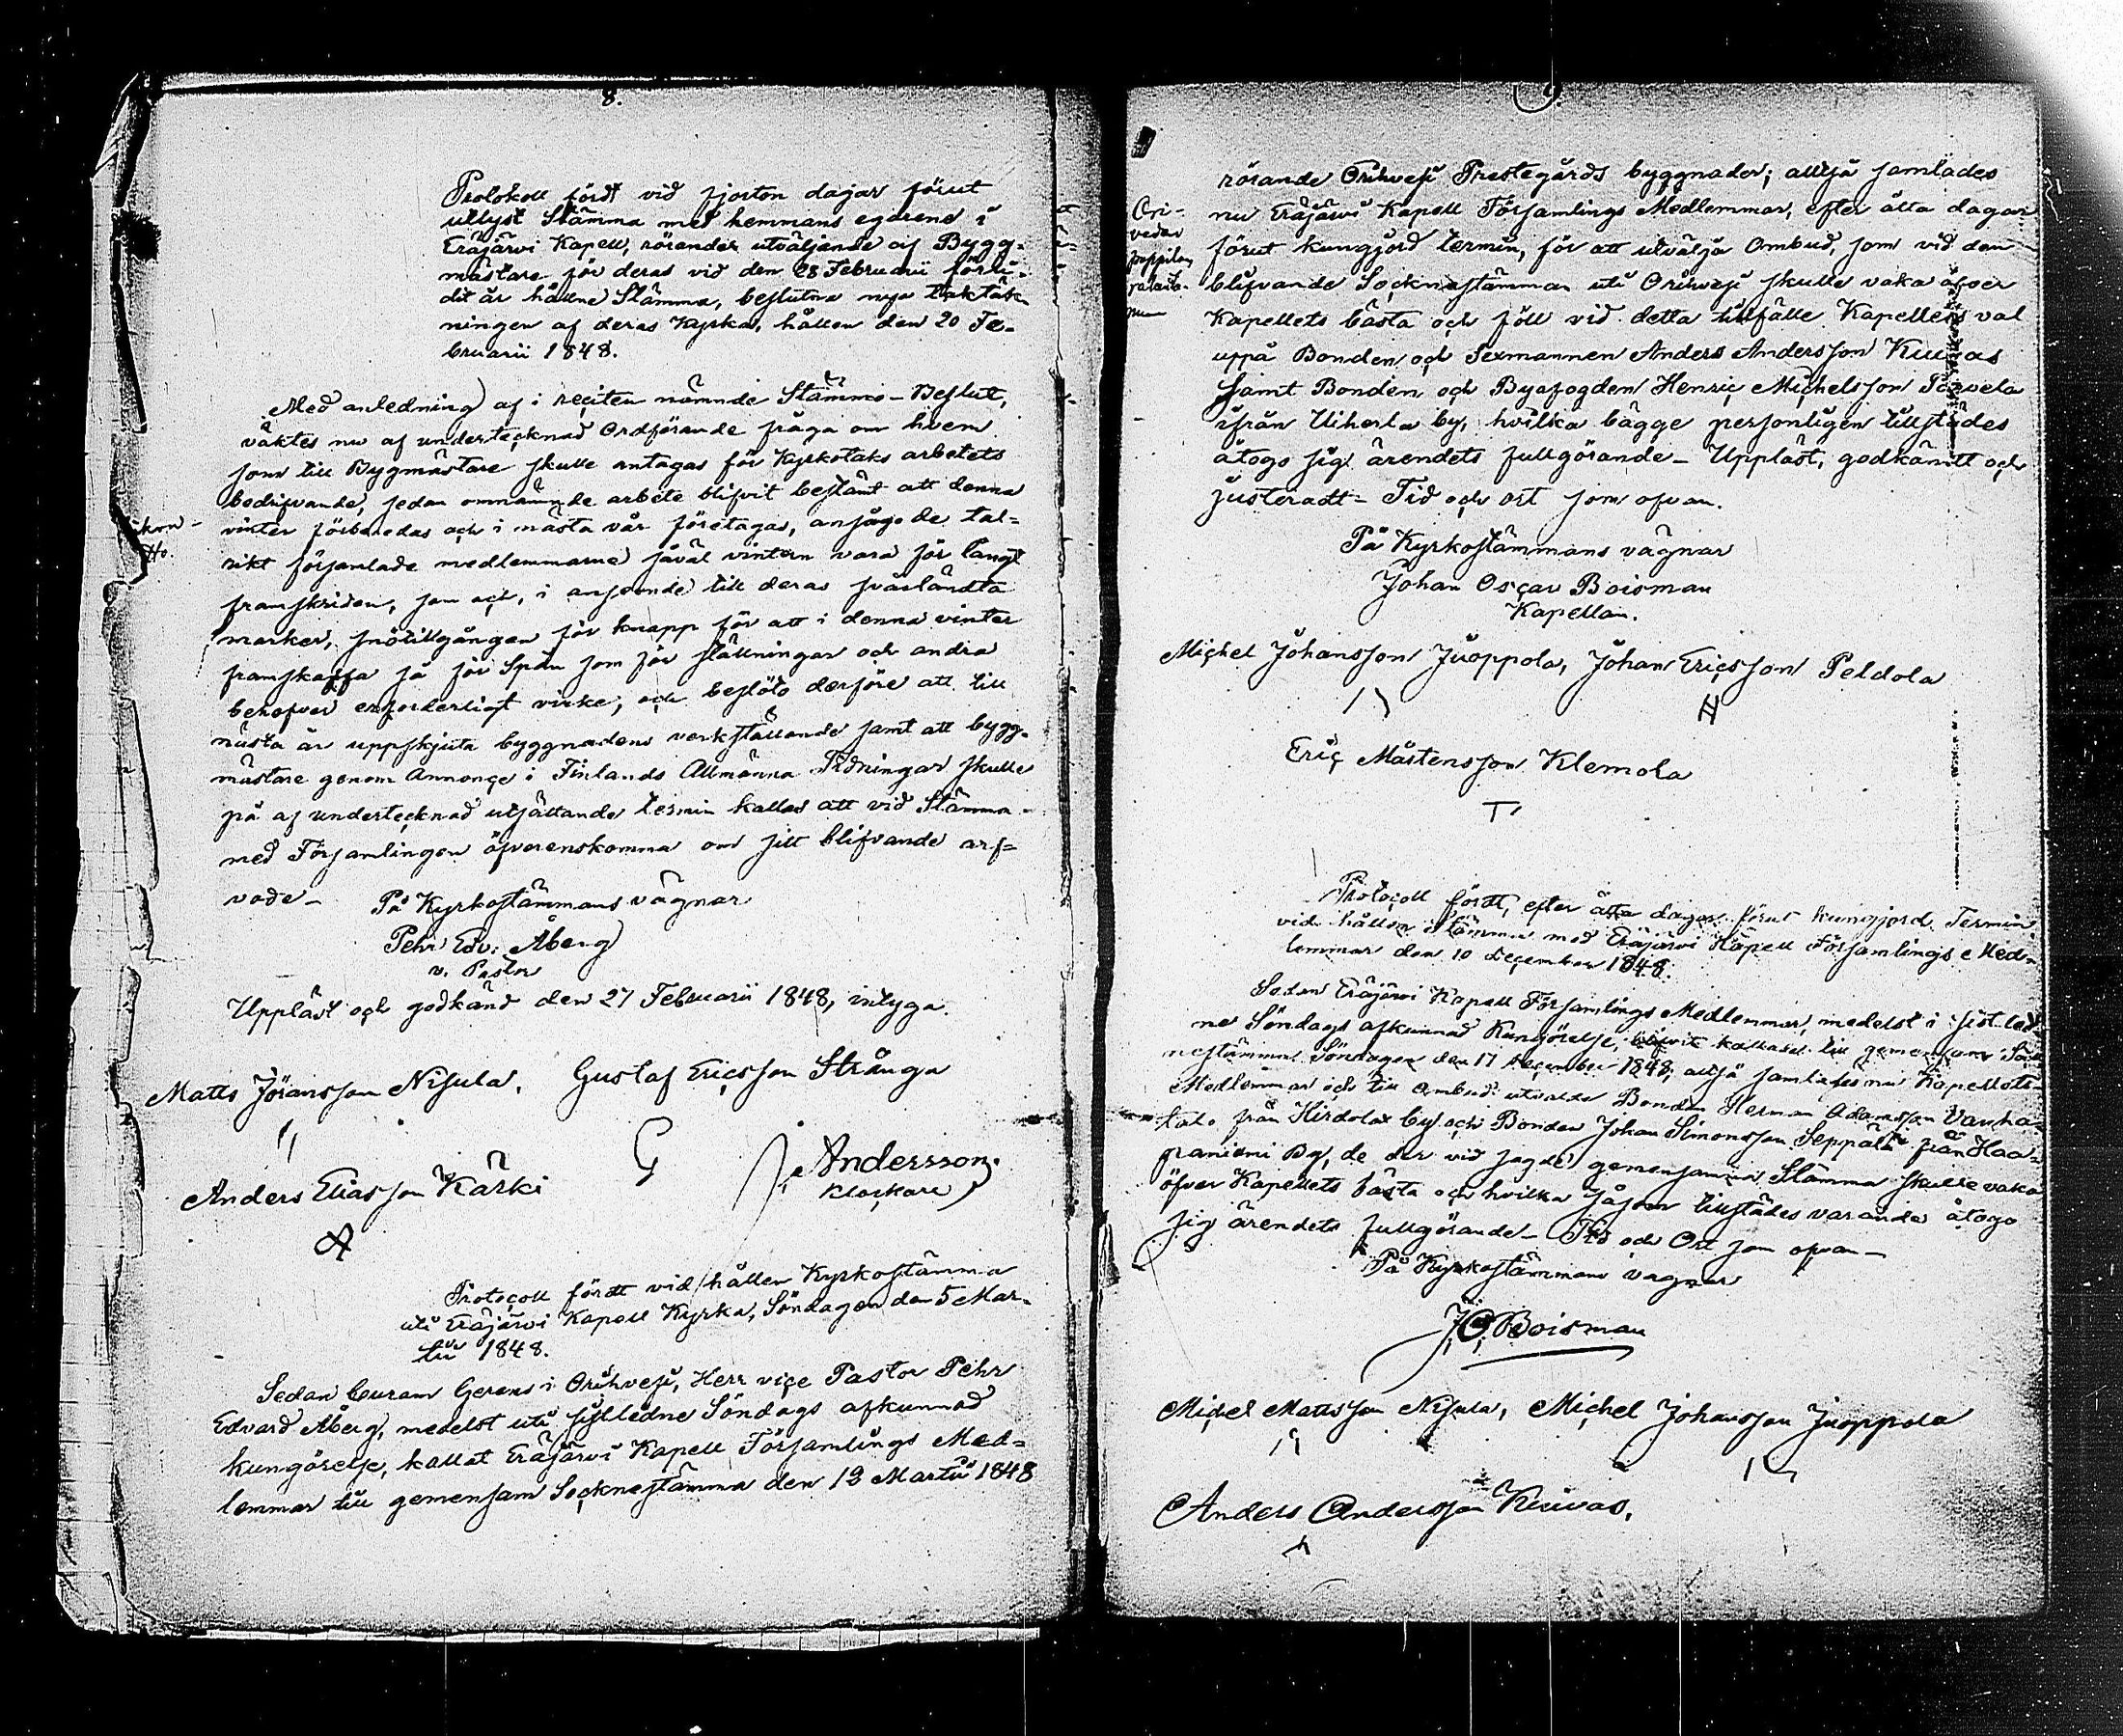 8.
Protokoll fördt vid fjorton dagar förut
utlyst Stämma med hemmans egarene i
Eräjärvi Kapell, rörande utväljande af Bygg-
mästare för deras vid den 28 Februarii förli-
dit år hållne Stämma, beslutna nya taktäk-
ningen af deras Kyrka, hållen den 20 Fe-
bruarii 1848.
Med anledning af i reciten nämnde Stämmo-Beslut,
väktes nu af undertecknad Ordförande fråga om hvem
som till Bygmästare skulle antagas för Kyrkotaks arbetets
bedrifvande, sedan omnämnde arbete blifvit bestämt att denna
vinter förberedas och i nästa vår företagas, ansågo de tal-
rikt församlade medlemmarne såväl vintern vara för långt
framskriden, som och, i anseende till deras svårländta
marker, snötillgången för knapp för att i denna vinter
framskaffa så för Spån som för ställningar och andra
behofver erforderligt virke, och beslöto derföre att till
nästa år uppskjuta byggnadens verkställande samt att bygg-
mästare genom Annonçe i Finlands Allmänna Tidningar skulle
på af undertecknad utsättande termin kallas att vid Stämma
med Församlingen öfverenskomma om sitt blifvande arf-
vode -
På Kyrkostämmans vägnar
Pehr Edv: Åberg
v. Pastor
Uppläst och godkänd den 27 Februarii 1848, intyga.
Matts Jöransson Nisula, Gustaf Ericsson Strånga
Anders Eliasson Kärki
G
J. Andersson.
Klockare
Protocoll fördt vid hållen Kyrkostämma
uti Eräjärvi Kapell Kyrka, Söndagen den 5 Mar-
tii 1848.
Sedan Curam Gerens i Orihvesi, Herr viçe Pastor Pehr
Edvard Åberg, medelst uti sistledne Söndags afkunnad
kungörelse, kallat Eräjärvi Kapell Församlings Med-
lemmar till gemensam Socknestämma den 12 Martii 1848
9.
Ori-
veden
pappilan
rörande Orihvesi Prestegårds byggnader; alltså samlades
nu Eräjärvi Kapell Församlings Medlemmar, efter åtta dagar
förut kungjord termin, för att utvälja Ombud, som vid den
blifvande Socknestämman uti Orihvesi skulle vaka öfver
Kapellets bästa och föll vid detta tillfälle Kapellets val
uppå Bonden och Sexmannen Anders Andersson Kuivas
samt Bonden och Byafogden Henric Michelsson Parvela
ifrån Uiherla by, hvilka bägge personligen tillstädes
åtogo sig ärendets fullgörande - Uppläst, godkänt och
justeradt - Tid och ort som ofvan.
På Kyrkostämmans vägnar
Johan Oscar Boisman
Kapellan.
Michel Johansson Juoppola, Johan Ericsson Peldola
Eric Mårtensson Klemola
Protocoll fördt, efter åtta dagar förut kungjord Termin,
vid hållen Stämma med Eräjärvi Kapell Församlings Med-
lemmar den 10 December 1848.
Sedan Eräjärvi Kapell Församlings Medlemmar, medelst i sistled-
ne Söndags afkunnad Kungörelse, blifvit kallade till gemensam Sock-
nestämma Söndagen den 17 December 1848; alltså samlades nu Kapellets
Medlemmar och till Ombud utvalde Bonden Herman Adamsson Vanha-
talo från Hirdola by och Bonden Johan Simonsson Seppälä från Haa-
praniemi By, de der vid sagde gemensamma Stämma skulle vaka
öfver Kapellets bästa och hvilka såsom tillstädes varande åtogo
sig ärendets fullgörande - Tid och Ort som ofvan -
På Kyrkostämmans vägnar
J.O. Boisman
Michel Mattsson Nisula, Michel Johansson Juoppola
Anders Andersson Kuivas.